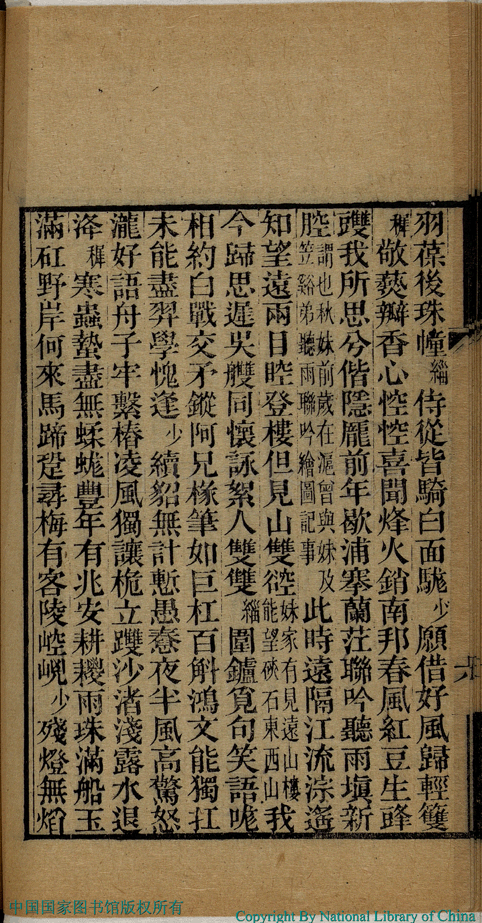 羽葆後珠幢緇侍從皆騎白面駹少願借好風歸輕䉶
穉敬爇瓣香心悾悾喜聞烽火銷南邦春風紅豆生䜶
躨我所思兮偕隱龐前年歇浦塞蘭茳聯吟聽雨塤新
腔謂也秋妹前歲在滬曾與妹及笠谿弟聽雨聯吟繪圖記事此時遠隔江流淙遙
知望遠兩日睉登樓但見山雙𧮰妹家有見遠山樓能望硤石東西山我
今歸思遲吳艭同懷詠絮人雙雙緇圍鑪覓句笑語哤
相約白戰交矛鏦阿兄椽筆如巨杠百斛鴻文能獨扛
未能盡羿學愧逢少續貂無計慙愚惷夜半風高驚怒
瀧好語舟子牢繫樁凌風獨讓桅立躨沙渚淺露水退
洚穉寒蟲蟄盡無蝚蛖豐年有兆安耕耰雨珠滿船玉
滿矼野岸何來馬蹄跫尋梅有客陵崆㟅少殘燈無熖
中国国家图书馆版权所有
Copyright By National Library of China